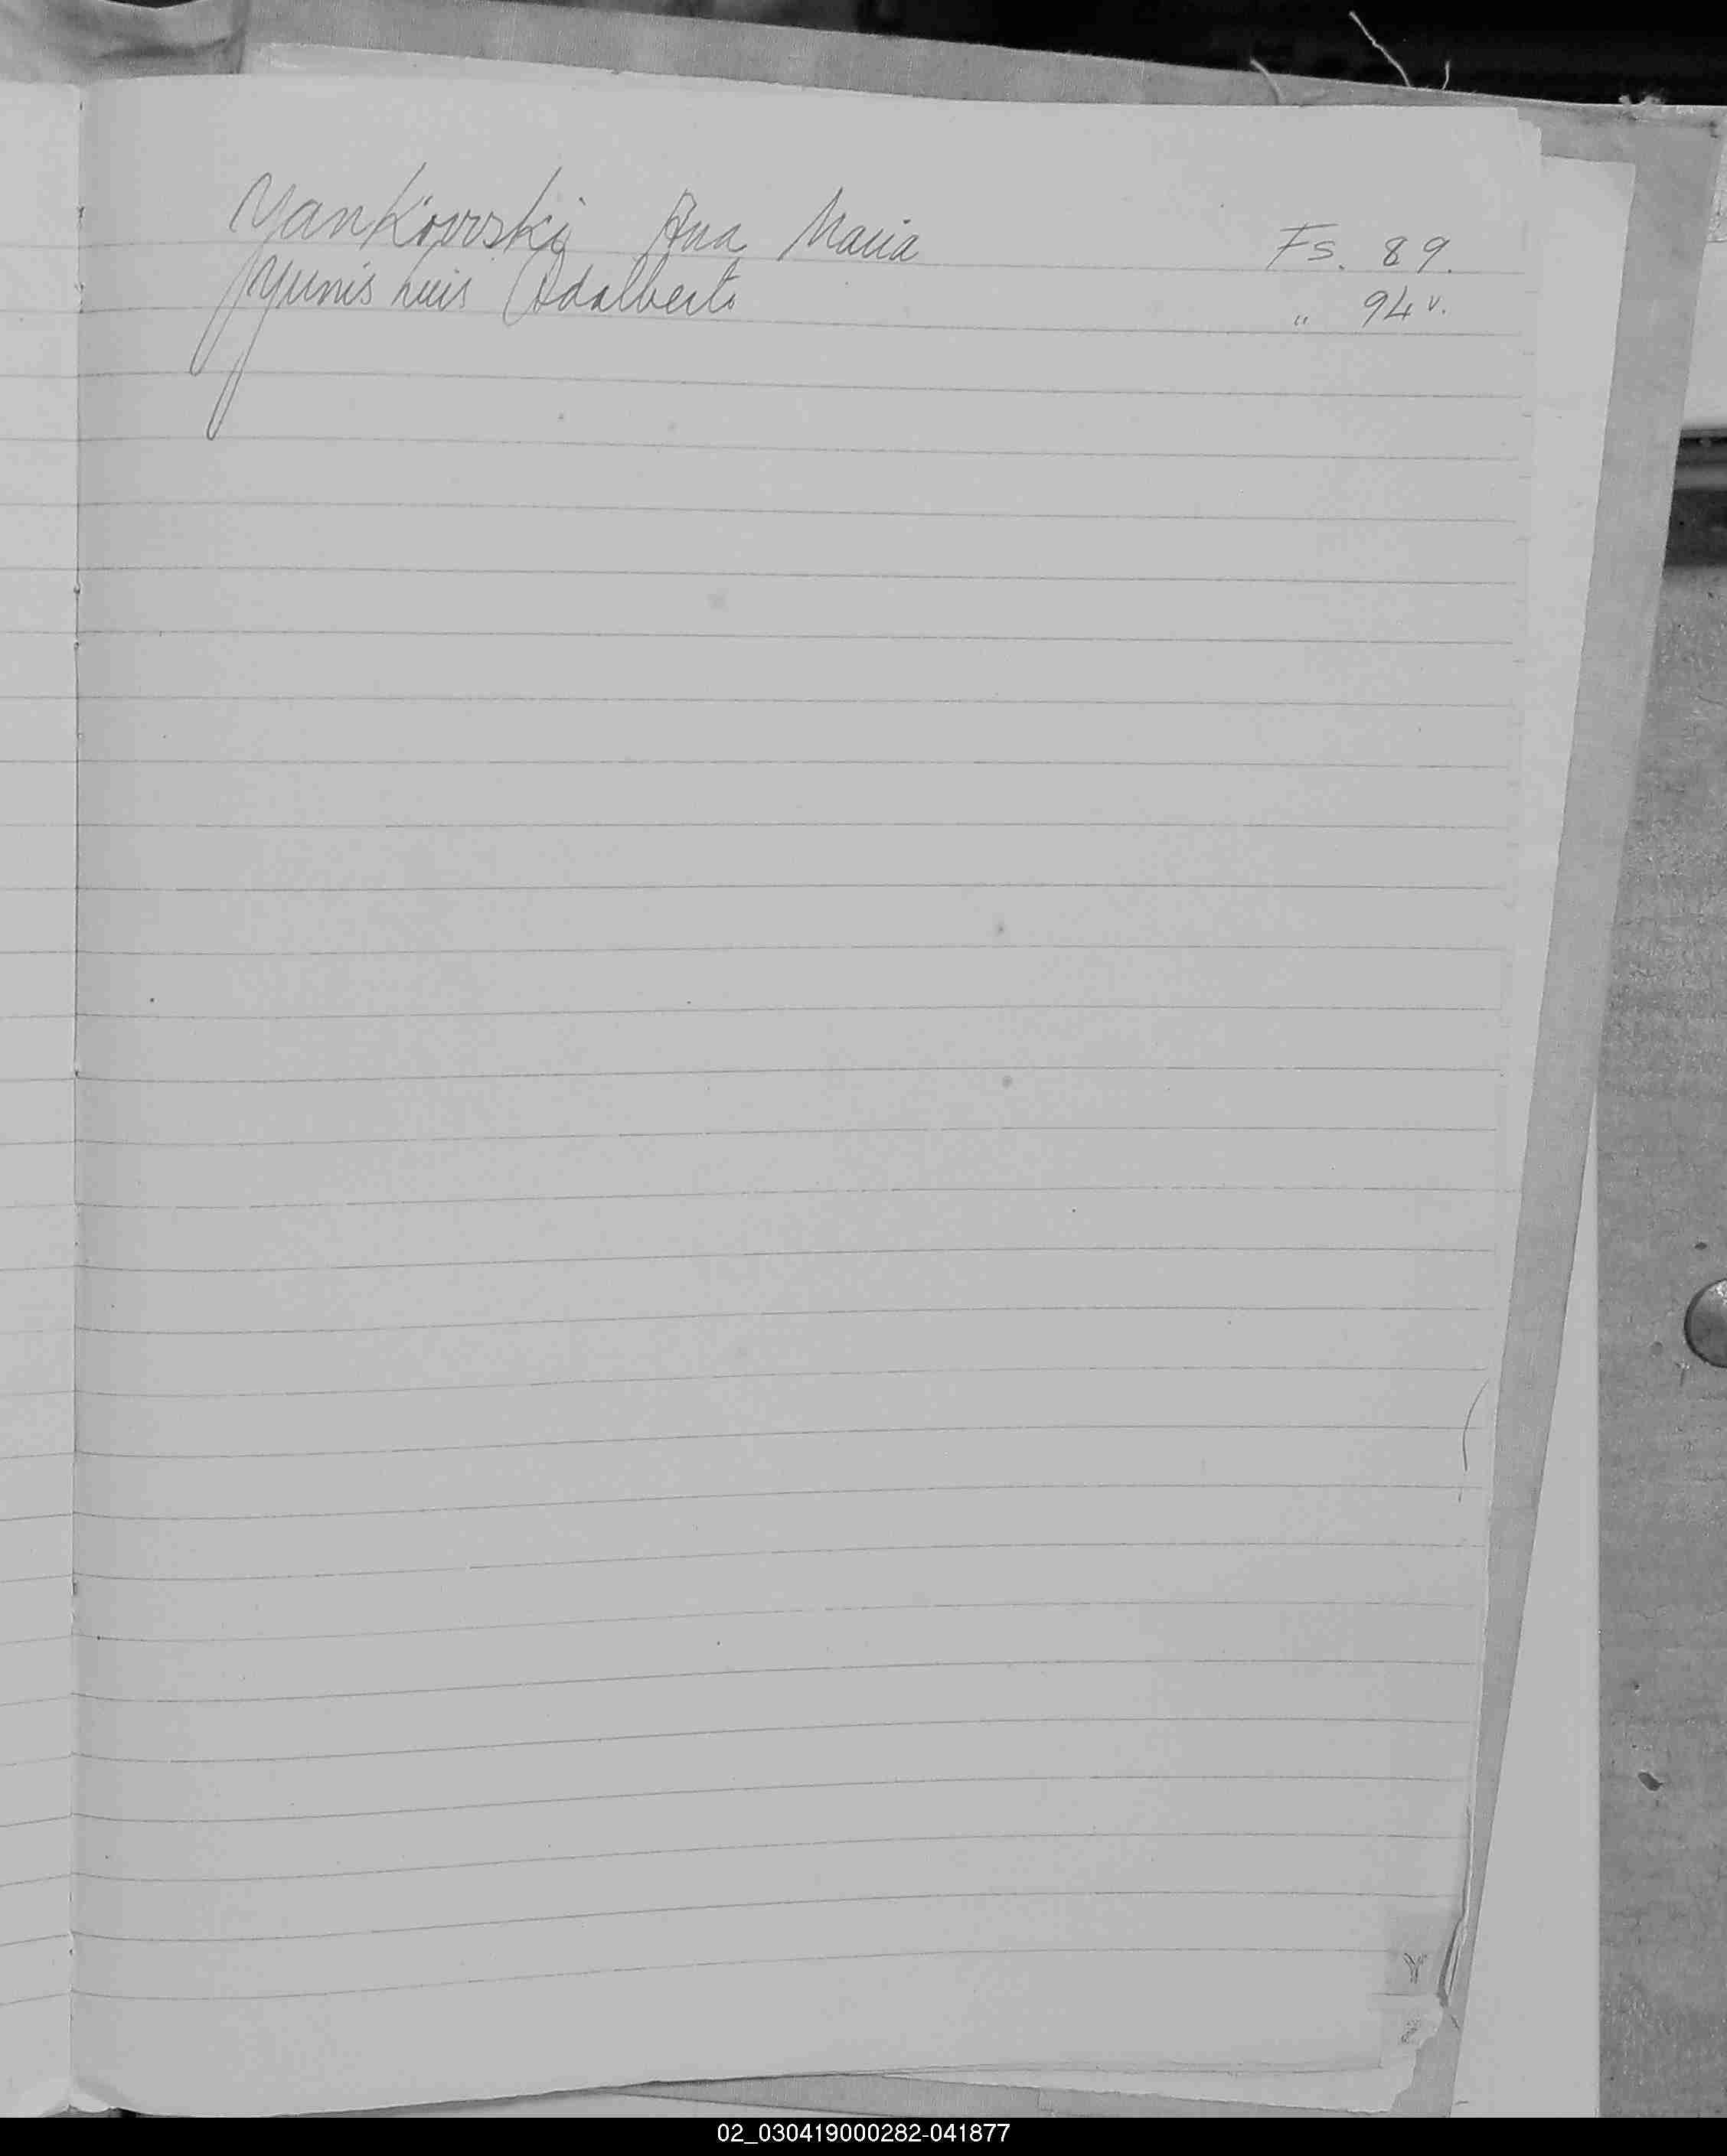 Yankowski Ana Maria Fs. 89.
Yunis Luis Adalberto " 94 v.
Y
02_030419000282-041877